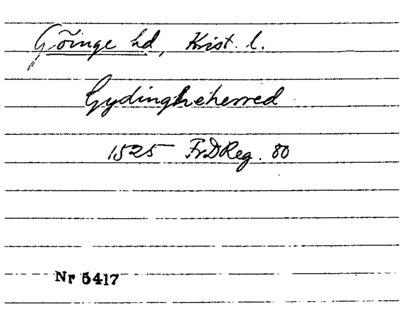 Göinge hd, Krist. l.
Gydingheherred
1525 FrDReg. 80
Nr 5417